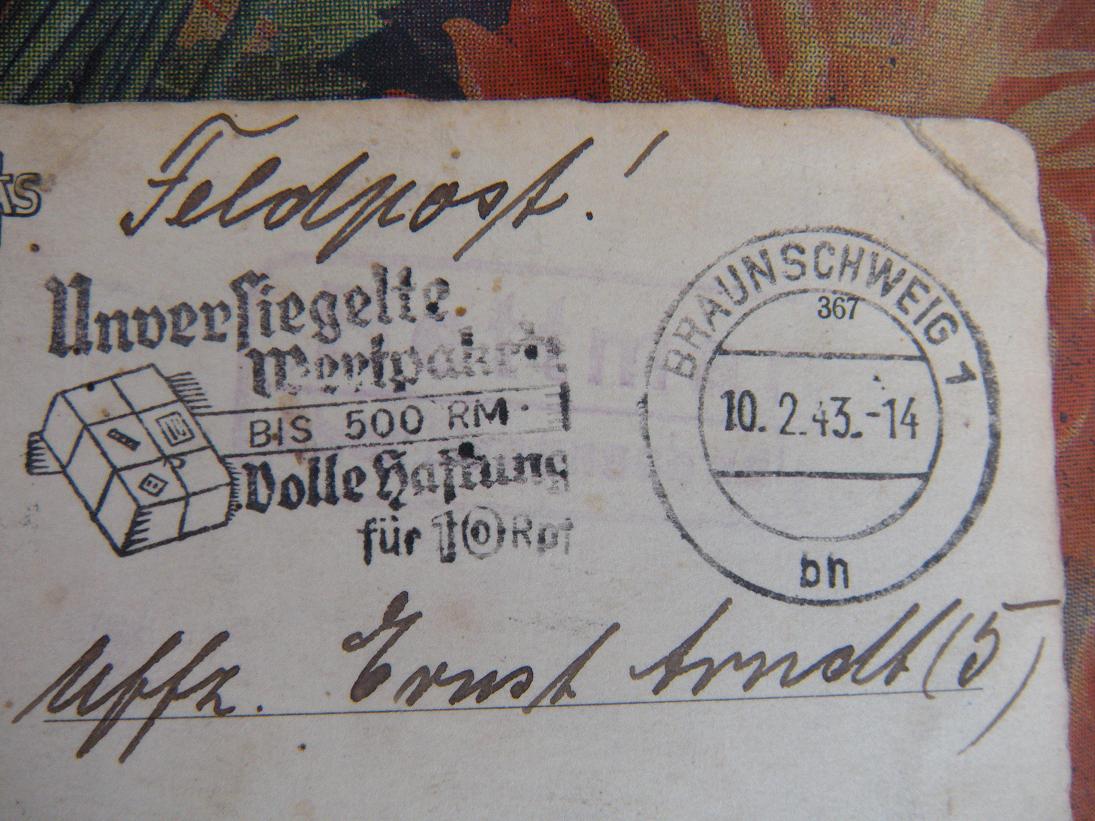 Feldpost!
Unversiegelte
Wertpakete
BIS 500 RM
Volle Haftung
für 10 Rpf
BRAUNSCHWEIG 1
367
10.2.43.-14
bn
Uffz. Ernst Arndt (5)